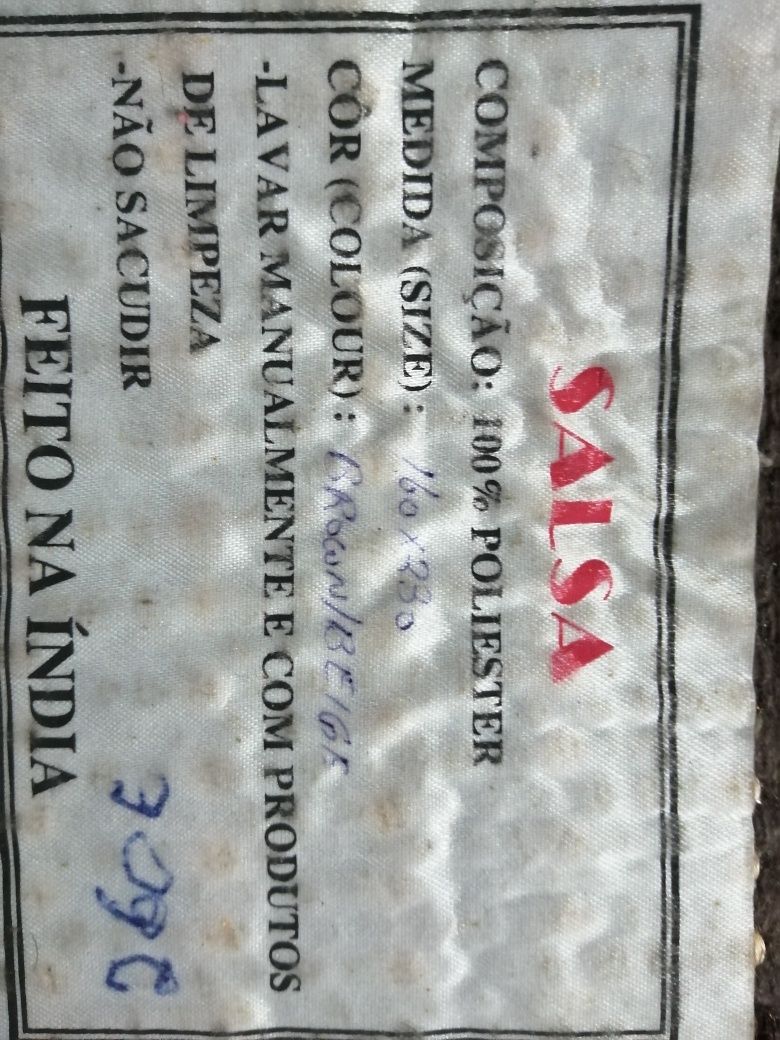 SALSA
COMPOSIÇÃO: 100% POLIESTER
MEDIDA (SIZE) : 160x230
CÔR (COLOUR) : BROWN/BEIGE
-LAVAR MANUALMENTE E COM PRODUTOS
DE LIMPEZA
-NÃO SACUDIR
FEITO NA ÍNDIA